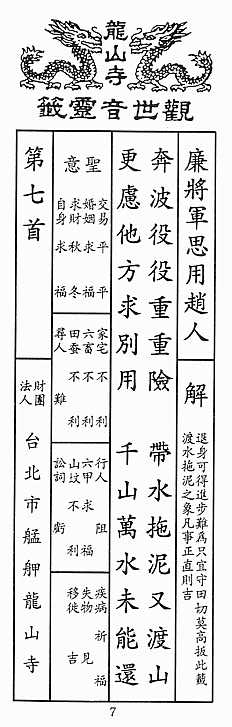 龍山寺
觀世音靈籤
廉將軍思用趙人
解
退身可得進步難為只宜守田切莫高扳此籤
渡水拖泥之象凡事正直則吉
奔波役役重重險 帶水拖泥又渡山
更慮他方求別用 千山萬水未能還
聖意
交易 平平
婚姻 求福
求財 秋冬
自身 求福
家宅 不利
六畜 不利
田蠶 不利
尋人 難
行人 阻
六甲 求福
山墳 不利
訟詞 虧
疾病 祈福
失物 見
移徙 吉
第七首
財團法人 台北市艋舺龍山寺
7